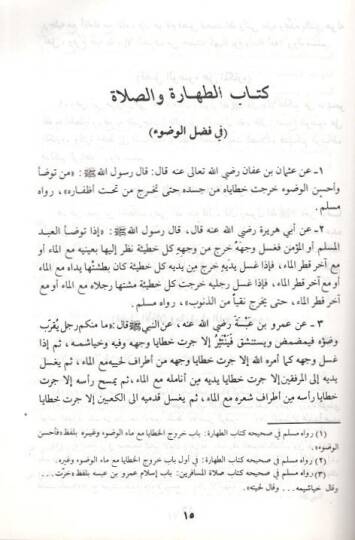 كتاب الطهارة والصلاة
(في فضل الوضوء)
١- عن عثمان بن عفان رضي الله تعالى عنه قال: قال رسول الله ﷺ: «من توضأ
وأحسن الوضوء خرجت خطاياه من جسده حتى تخرج من تحت أظفاره»، رواه
مسلم.
٢- عن أبي هريرة رضي الله عنه قال، قال رسول الله ﷺ: «إذا توضأ العبد
المسلم أو المؤمن فغسل وجهه خرج من وجهه كل خطيئة نظر إليها بعينيه مع الماء أو
مع آخر قطر الماء، فإذا غسل يديه خرج من يديه كل خطيئة كان بطشتها يداه مع الماء
أو مع آخر قطر الماء، فإذا غسل رجليه خرجت كل خطيئة مشتها رجلاه مع الماء أو مع آخر
قطر الماء، حتى يخرج نقياً من الذنوب»، رواه مسلم.
٣- عن عمرو بن عبسة رضي الله عنه، عن النبي ﷺ قال: «ما منكم رجل يقرب
وضوءه فيمضمض ويستنشق فينتثر إلا جرت خطايا وجهه وفيه وخياشمه، ثم إذا
غسل وجهه كما أمره الله إلا جرت خطايا وجهه من أطراف لحيته مع الماء، ثم يغسل
يديه إلى المرفقين إلا جرت خطايا يديه من أنامله مع الماء، ثم يمسح رأسه إلا جرت
خطايا رأسه من أطراف شعره مع الماء، ثم يغسل قدميه الى الكعبين إلا جرت خطايا
(١) رواه مسلم في صحيحه كتاب الطهارة: باب خروج الخطايا مع ماء الوضوء وغيره بلفظ «فأحسن
الوضوء».
(٢) رواه مسلم في صحيحه كتاب الطهارة: في أول باب خروج الخطايا مع ماء الوضوء وغيره.
(٣) رواه مسلم في صحيحه كتاب صلاة المسافرين: باب إسلام عمرو بن عبسه بلفظ «خرّت...
وقال خياشيمه... وقال لحيته».
١٥